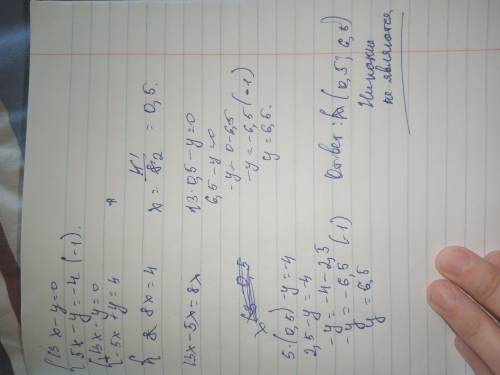 {13x-y=0
{5x-y=-4 (-1).
{13x-y=0
{-5x+y=4
{ 8x=4
x= 4/8 1/2 = 0,5.
13x-5x=8x
13·0,5-y=0
6,5-y=0
-y=0-6,5
-y=-6,5 (-1)
y=6,5.
5·(0,5)-y=-4
2,5-y=-4
-y=-4-2,5
-y=-6,5 (-1)
y=6,5
Ответ: (0,5; 6,5)
не являются